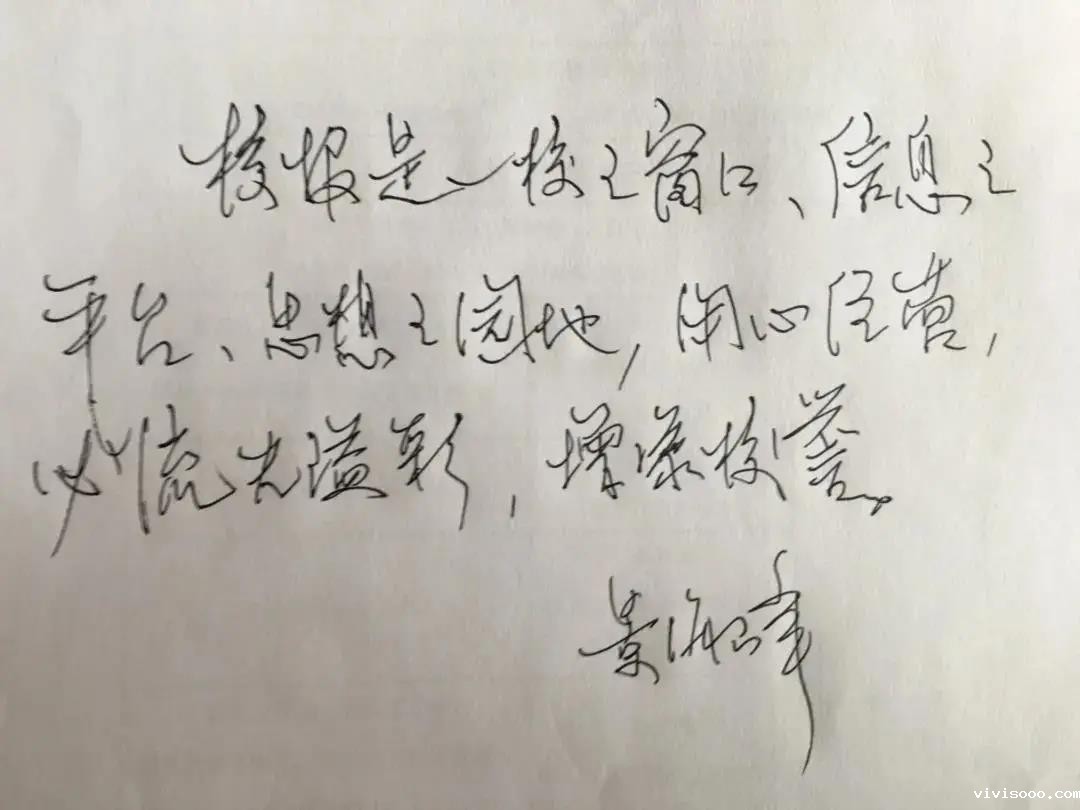 校报是一校之窗口、信息之
平台、思想之园地，用心经营，
必流光溢彩，增添校誉。
景海峰
vivisooo.com